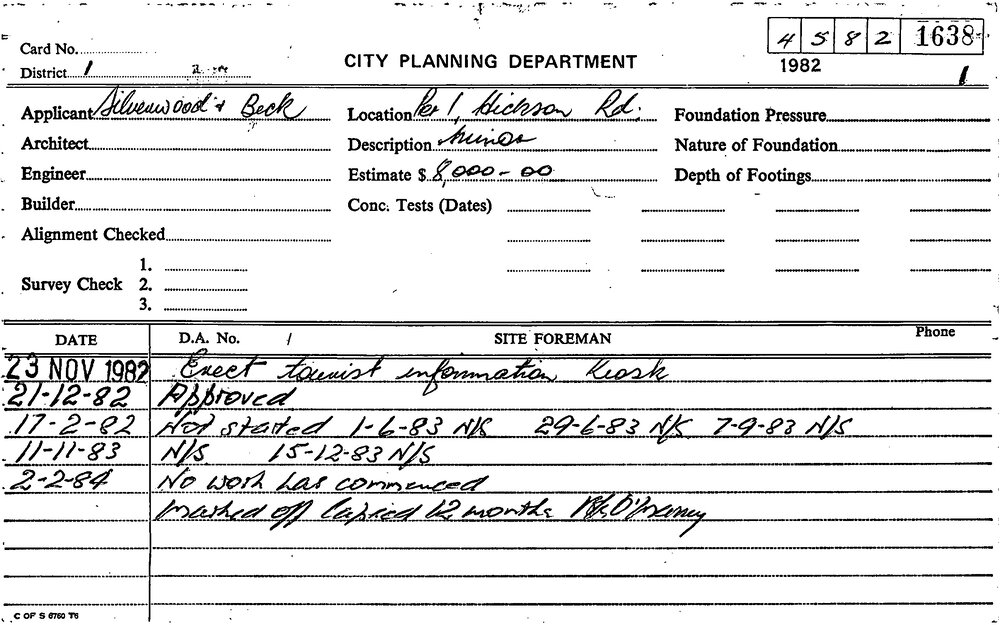 4 5 8 2 1638
Card No.
CITY PLANNING DEPARTMENT
1982
District 1
1
Applicant Silverwood + Beck Location Pier 1, Hickson Rd. Foundation Pressure
Architect Description Minor Nature of Foundation
Engineer Estimate $ 8,000-00 Depth of Footings
Builder Conc. Tests (Dates)
Alignment Checked
1.
Survey Check 2.
3.
DATE D.A. No. / SITE FOREMAN Phone
23 NOV 1982 Erect tourist information Kiosk
21-12-82 Approved
17-2-82 Not started 1-6-83 N/S 29-6-83 N/S 7-9-83 N/S
11-11-83 N/S 15-12-83 N/S
2-2-84 No work has commenced
marked off Lapsed 12 months
C OF S 6760 T6